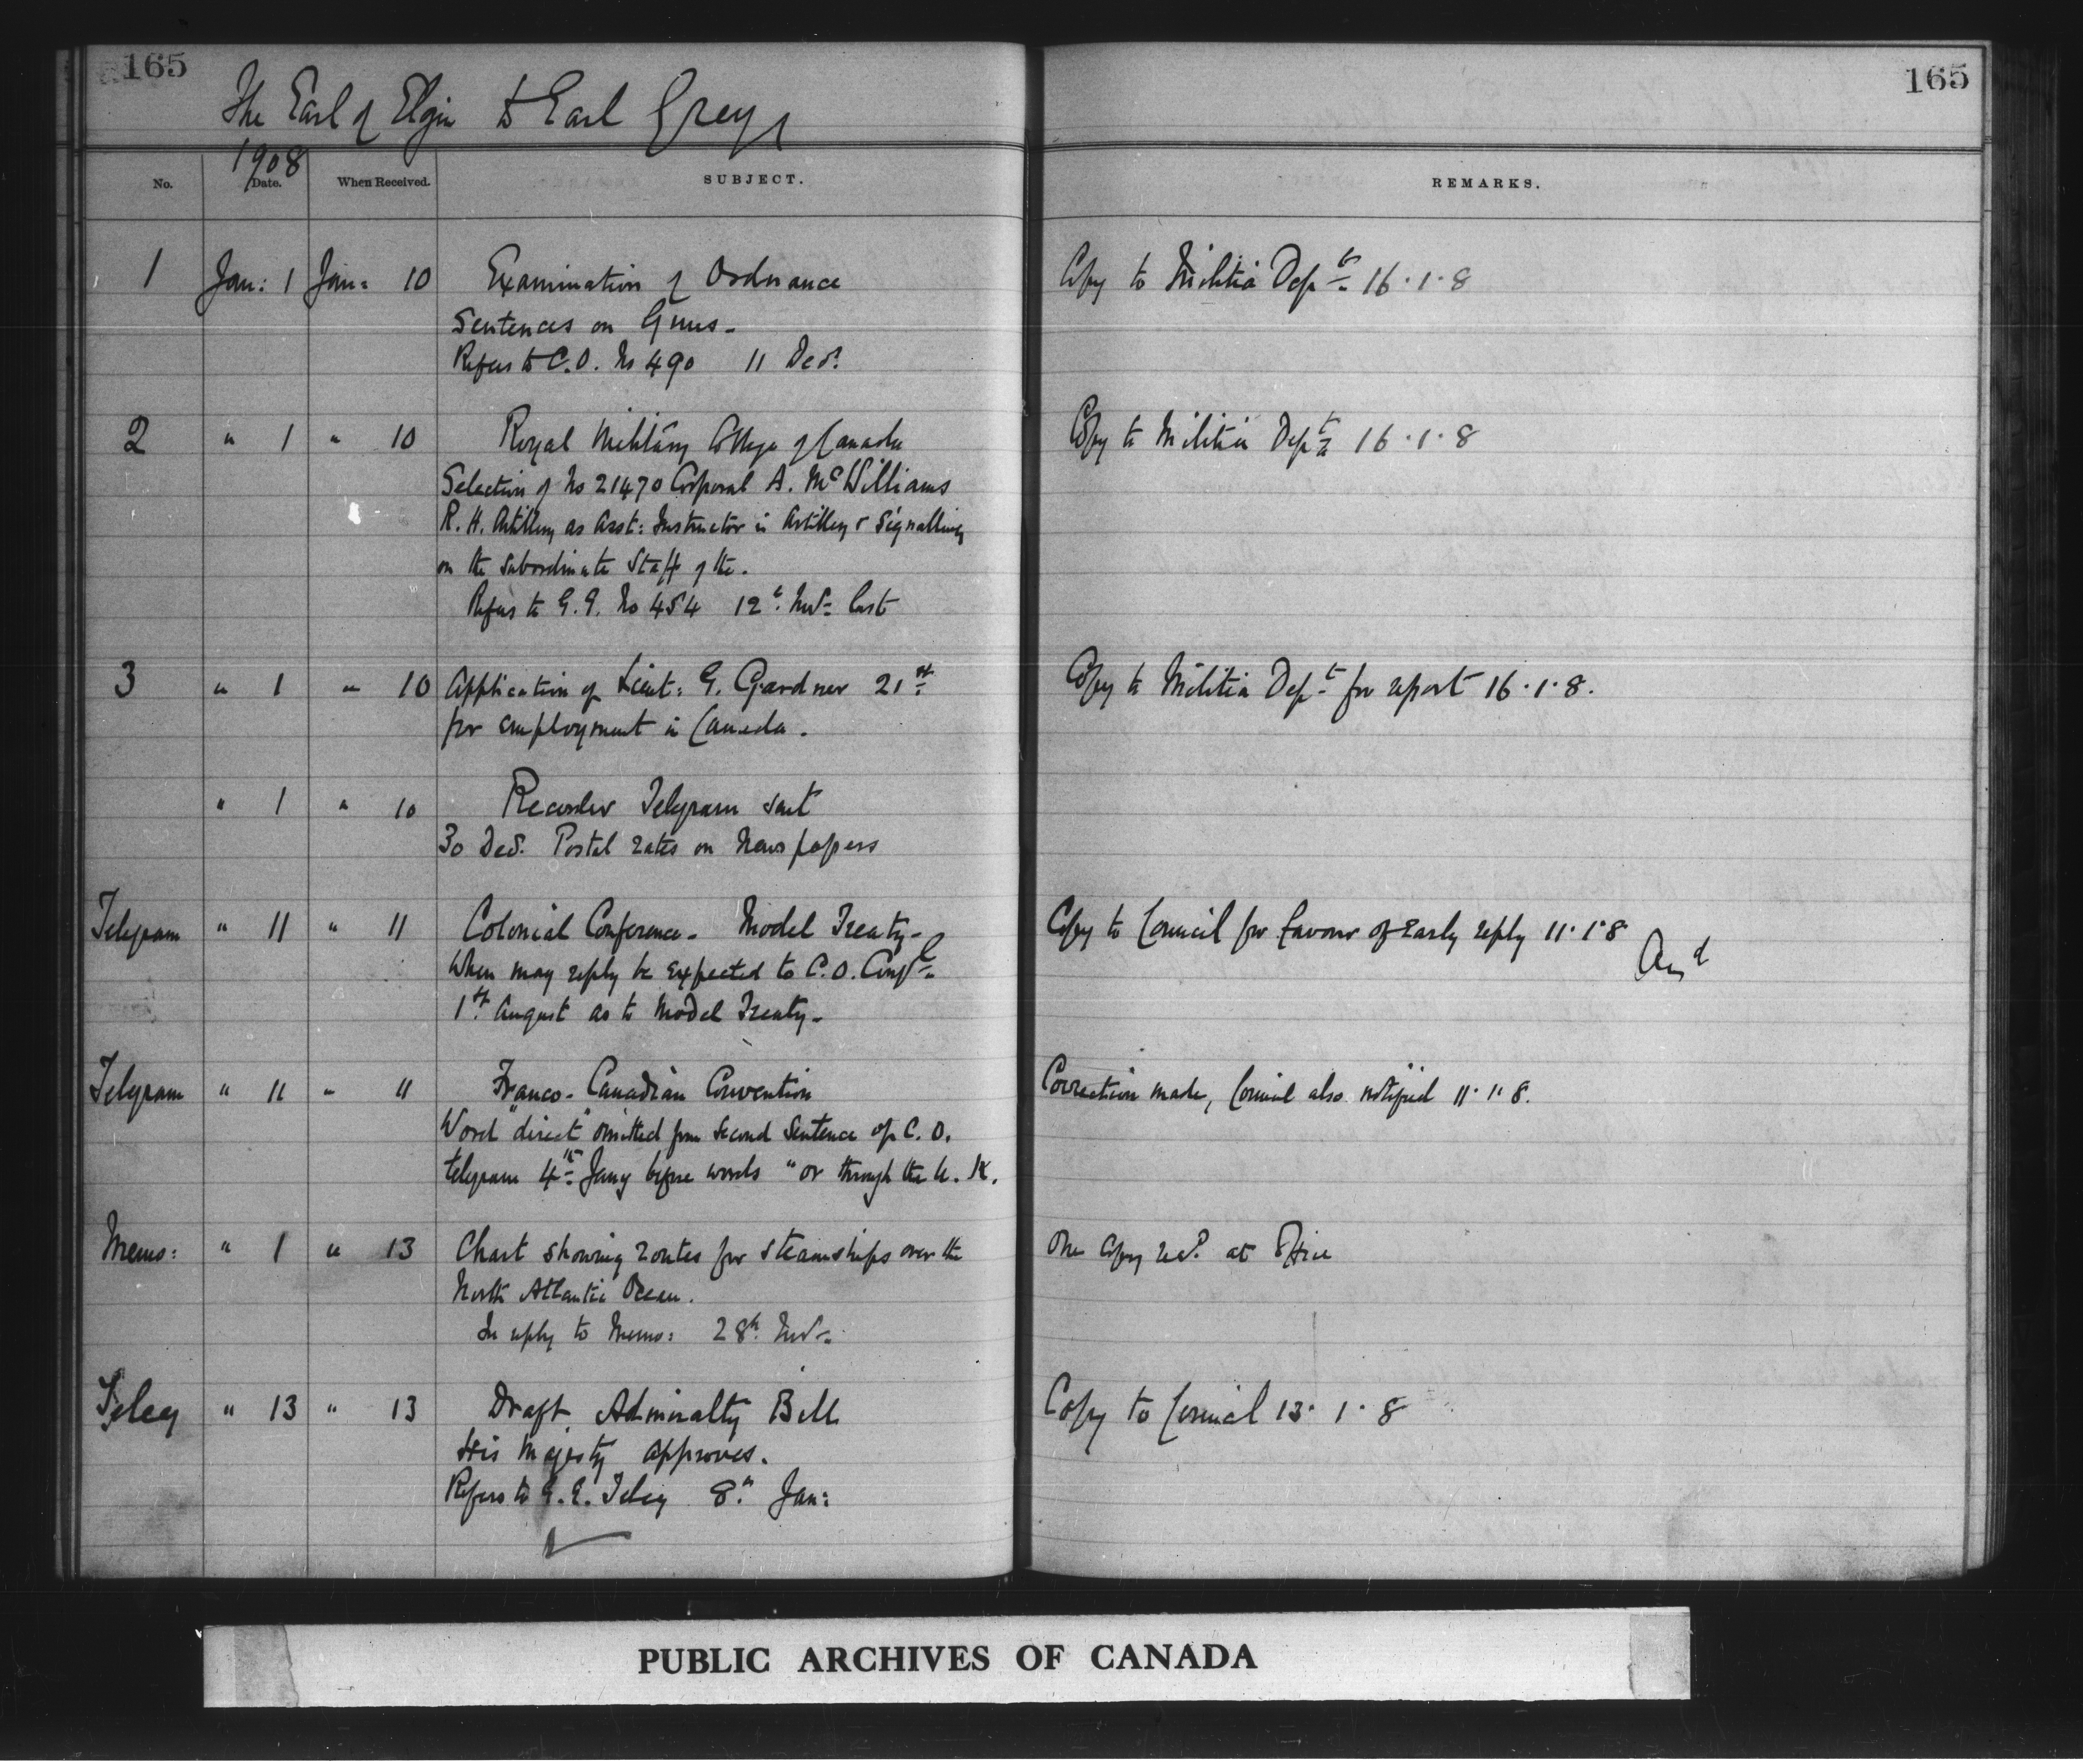 165
165
The Earl of Elgin to Earl Grey
1908
No.
Date.
When Received.
SUBJECT.
REMARKS.
1 Jan: 1 Jan: 10 Examination of Ordnance
Copy to Militia Dept. 16.1.8
Sentences on Guns-
Refers to C.O. No 490 11 Decr.
2 " 1 " 10 Royal Military College of Canada
Copy to Militia Dept. 16.1.8
Selection of No 21470 Corporal A. McWilliams
R. H. Artillery as Asst: Instructor in Artillery & Signalling
on the subordinate Staff of the.
Refers to G.G. No 454 12t. Novr. last
3 " 1 " 10 Application of Lieut: G. Gardner 21st
Copy to Militia Dept. for report 16.1.8.
for employment in Canada.
" 1 " 10 Recorder Telegram sent
30 Decr. Postal rates on Newspapers
Telegram " 11 " 11 Colonial Conference- Model Treaty-
Copy to Council for favour of early reply 11.1.8
Ansd
When may reply be expected to C.O. Confl.
1st August as to Model Treaty-
Telegram " 11 " 11 Franco-Canadian Convention
Correction made, Council also notified 11.1.8.
Word "direct" omitted from second sentence of C.O.
telegram 4th Jany before words "or through the U.K.
Memo: " 1 " 13 Chart showing routes for steamships over the
One Copy recd. at Office
North Atlantic Ocean.
In reply to Memo: 28th. Novr.
Teleg " 13 " 13 Draft Admiralty Bill
Copy to Council 13.1.8
His Majesty approves.
Refers to G.G. Teleg 8th Jan:
PUBLIC ARCHIVES OF CANADA